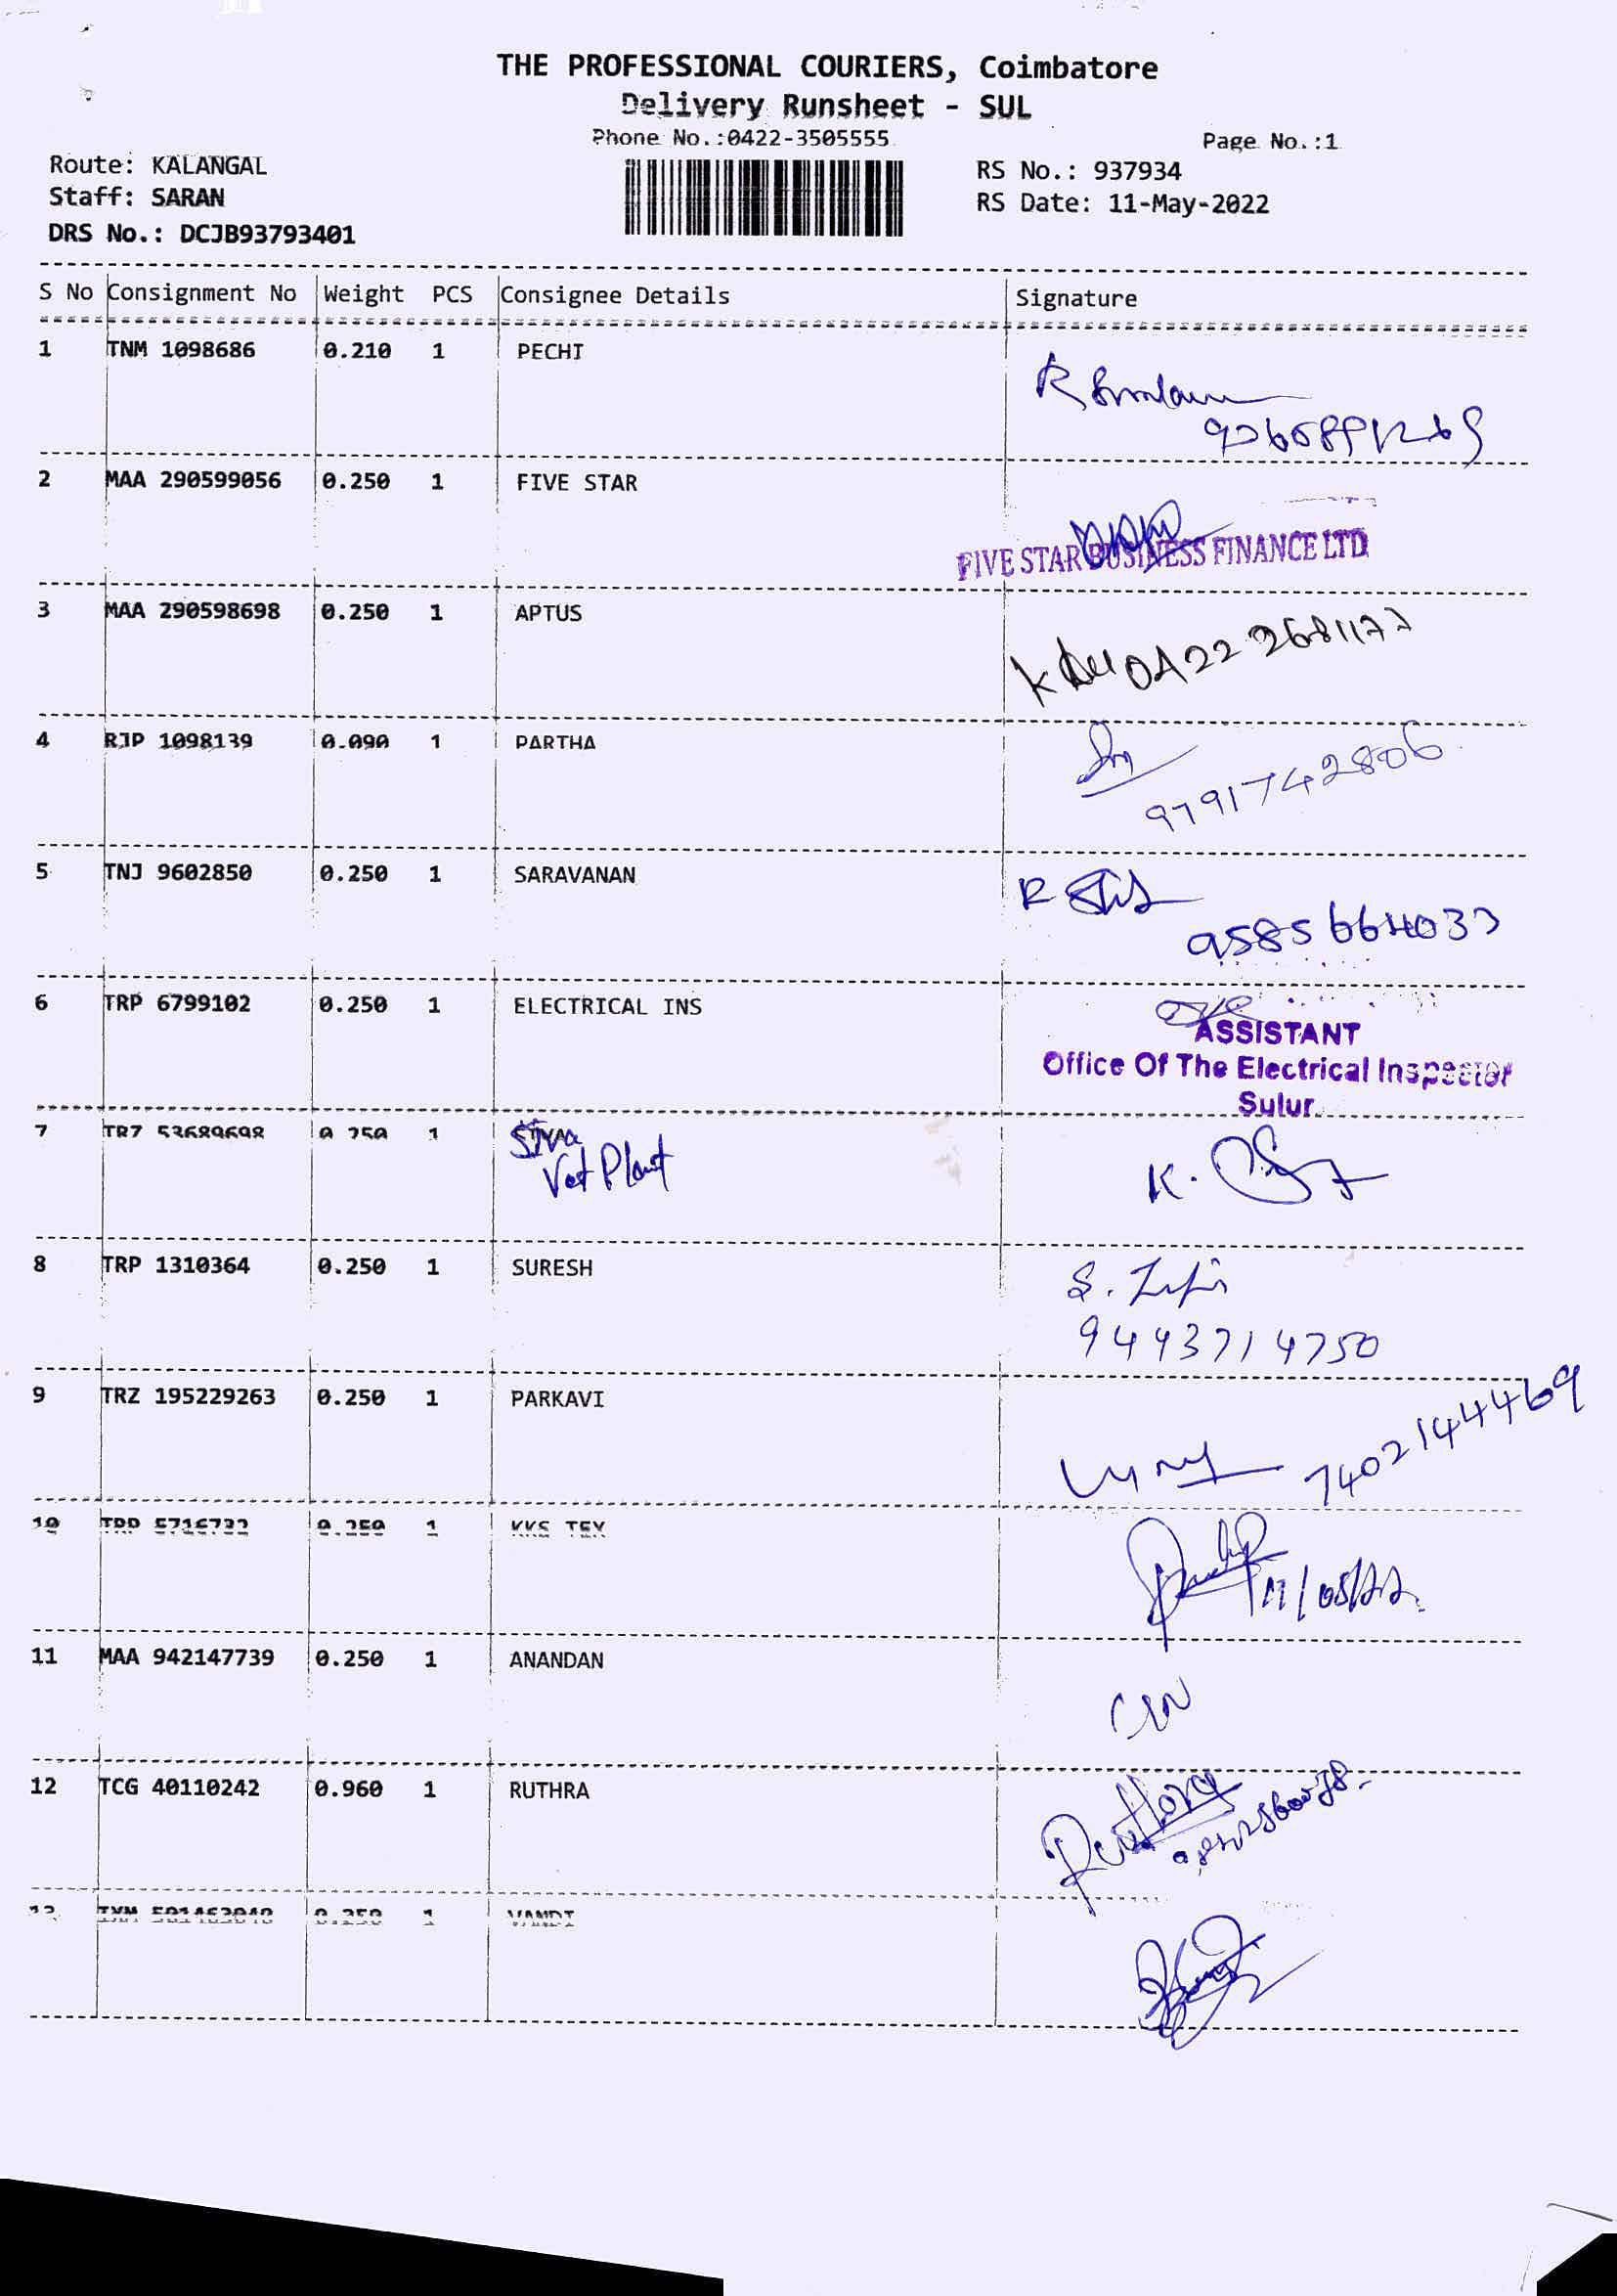 THE PROFESSIONAL COURIERS, Coimbatore
Delivery Runsheet - SUL
Phone No.:0422-3505555 Page No.:1
Route: KALANGAL RS No.: 937934
Staff: SARAN RS Date: 11-May-2022
DRS No.: DCJB93793401
S No Consignment No Weight PCS Consignee Details Signature
1 TNM 1098686 0.210 1 PECHI
2 MAA 290599056 0.250 1 FIVE STAR
FIVE STAR BUSINESS FINANCE LTD
3 MAA 290598698 0.250 1 APTUS
0422 2681177
4 RJP 1098139 0.090 1 PARTHA
9791742806
5 TNJ 9602850 0.250 1 SARAVANAN
9585664033
6 TRP 6799102 0.250 1 ELECTRICAL INS
ASSISTANT
Office Of The Electrical Inspector
Sulur
7 0.250 1 Siva
Vet Plant
K.
8 TRP 1310364 0.250 1 SURESH
S.
9443714750
9 TRZ 195229263 0.250 1 PARKAVI
7402144469
10 TRP 5716732 0.250 1 KKS TEX
11/05/22
11 MAA 942147739 0.250 1 ANANDAN
12 TCG 40110242 0.960 1 RUTHRA
Ruthra
13 0.250 1 VANDI